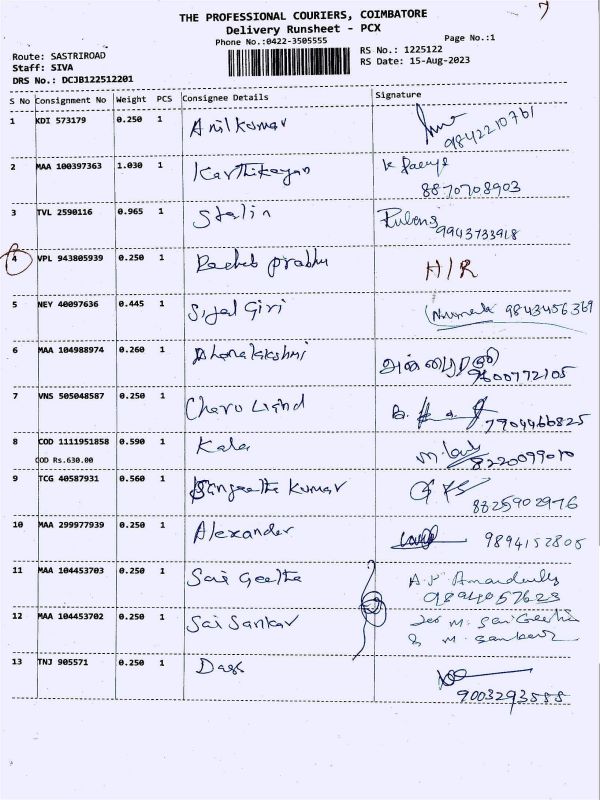 THE PROFESSIONAL COURIERS, COIMBATORE
Delivery Runsheet - PCX
Phone No.:0422-3505555
Page No.:1
Route: SASTRIROAD
RS No.: 1225122
Staff: SIVA
RS Date: 15-Aug-2023
DRS No.: DCJB122512201
S No Consignment No Weight PCS Consignee Details Signature
1 KDI 573179 0.250 1 Anilkumar
9842210761
2 MAA 100397363 1.030 1 Karthikeyan
8870708903
3 TVL 2590116 0.965 1 Stalin
9943733918
4 VPL 943805939 0.250 1 Prabhu H/R
5 NEY 40097636 0.445 1 Sijal Giri 9843456369
6 MAA 104988974 0.260 1 Dhanalakshmi
9600772105
7 VNS 505048587 0.250 1 Charu
7904466825
8 COD 1111951858 0.590 1 Kala
COD Rs.630.00
8220099010
9 TCG 40587931 0.560 1 Sangeetha Kumar
8825902976
10 MAA 299977939 0.250 1 Alexander 9894152805
11 MAA 104453703 0.250 1 Sai Geetha
9894057623
12 MAA 104453702 0.250 1 Sai Sankar for M. Sai Geetha
& M. Sankar
13 TNJ 905571 0.250 1 Dass
9003293555